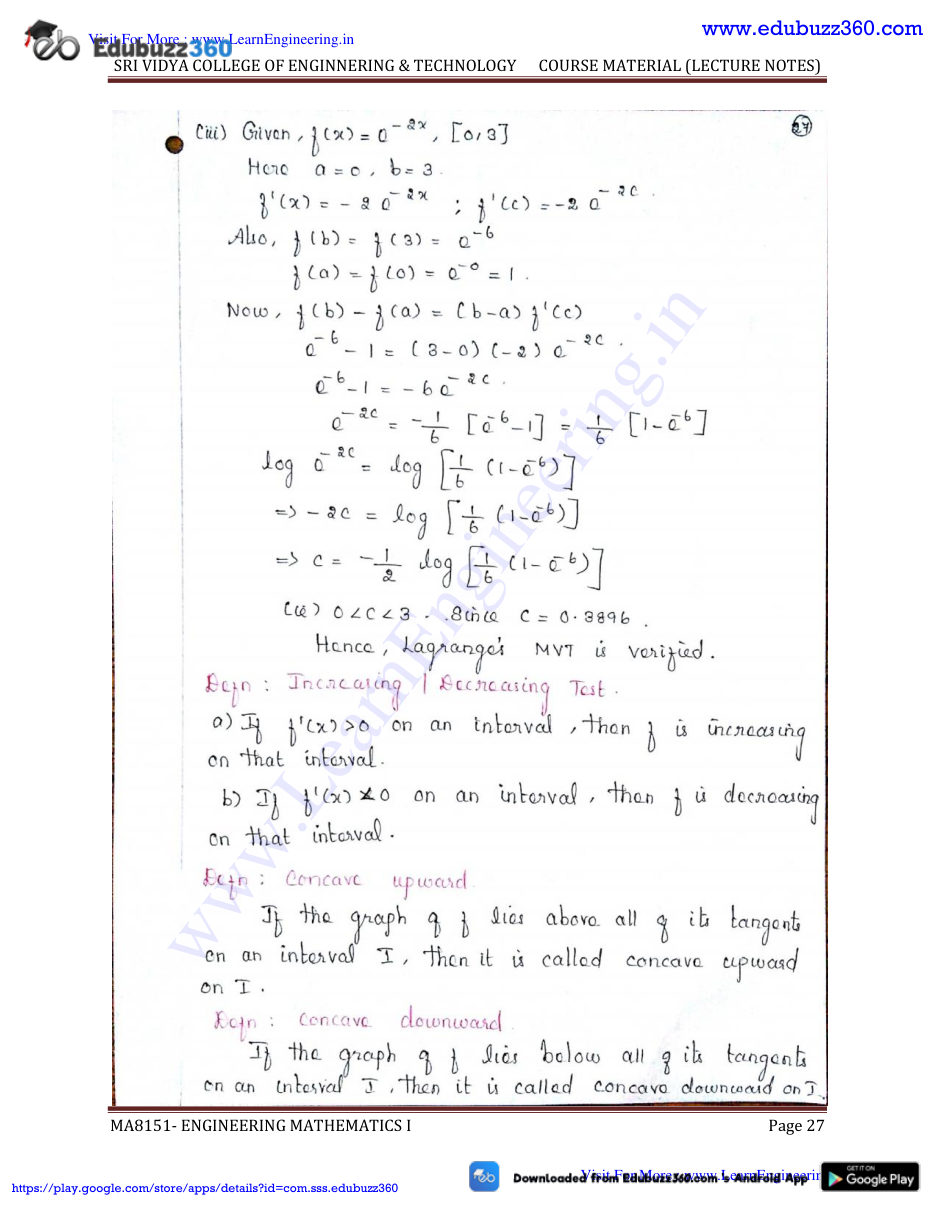 www.edubuzz360.com
Visit For More : www.LearnEngineering.in
Edubuzz360
SRI VIDYA COLLEGE OF ENGINNERING & TECHNOLOGY COURSE MATERIAL (LECTURE NOTES)
27
(iii) Given, f(x) = e^{-2x}, [0,3]
Here a = 0, b = 3.
f'(x) = -2 e^{-2x} ; f'(c) = -2 e^{-2c}.
Also, f(b) = f(3) = e^{-6}
f(a) = f(0) = e^{-0} = 1.
Now, f(b) - f(a) = (b-a) f'(c)
e^{-6} - 1 = (3-0) (-2) e^{-2c}.
e^{-6} - 1 = -6 e^{-2c}.
e^{-2c} = -1/6 [e^{-6} - 1] = 1/6 [1 - e^{-6}]
log e^{-2c} = log [1/6 (1 - e^{-6})]
=> -2c = log [1/6 (1 - e^{-6})]
=> c = -1/2 log [1/6 (1 - e^{-6})]
(ie) 0 < c < 3. Since c = 0.8896.
Hence, Lagrange's MVT is verified.
Defn : Increasing / Decreasing Test.
a) If f'(x) > 0 on an interval, then f is increasing
on that interval.
b) If f'(x) < 0 on an interval, then f is decreasing
on that interval.
Defn : Concave upward.
If the graph of f lies above all of its tangents
on an interval I, then it is called concave upward
on I.
Defn : Concave downward.
If the graph of f lies below all of its tangents
on an interval I, then it is called concave downward on I.
www.LearnEngineering.in
MA8151- ENGINEERING MATHEMATICS I Page 27
https://play.google.com/store/apps/details?id=com.sss.edubuzz360
Downloaded from EduBuzz360.com 's Android App
Visit For More : www.LearnEngineerin
GET IT ON
Google Play